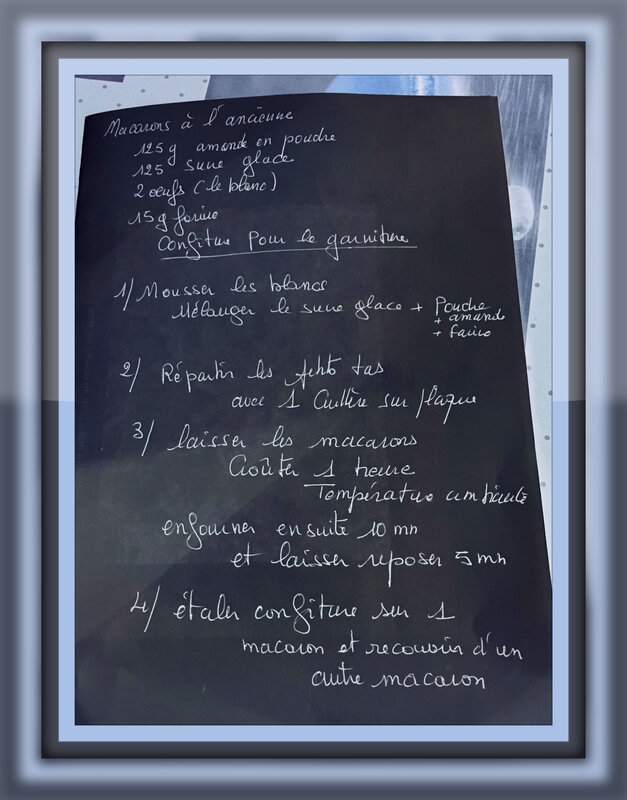 Macarons à l'ancienne
125 g amande en poudre
125 sucre glace
2 oeufs (le blanc)
15 g farine
Confiture pour le garniture
1/ Mousser les blancs
Mélanger le sucre glace + Poudre
+ amande
+ farine
2/ Répartir les petits tas
avec 1 Cuillère sur plaque
3/ laisser les macarons
Croûter 1 heure
Température ambiante
enfourner ensuite 10 mn
et laisser reposer 5 mn
4/ étaler confiture sur 1
macaron et recouvrir d'un
autre macaron